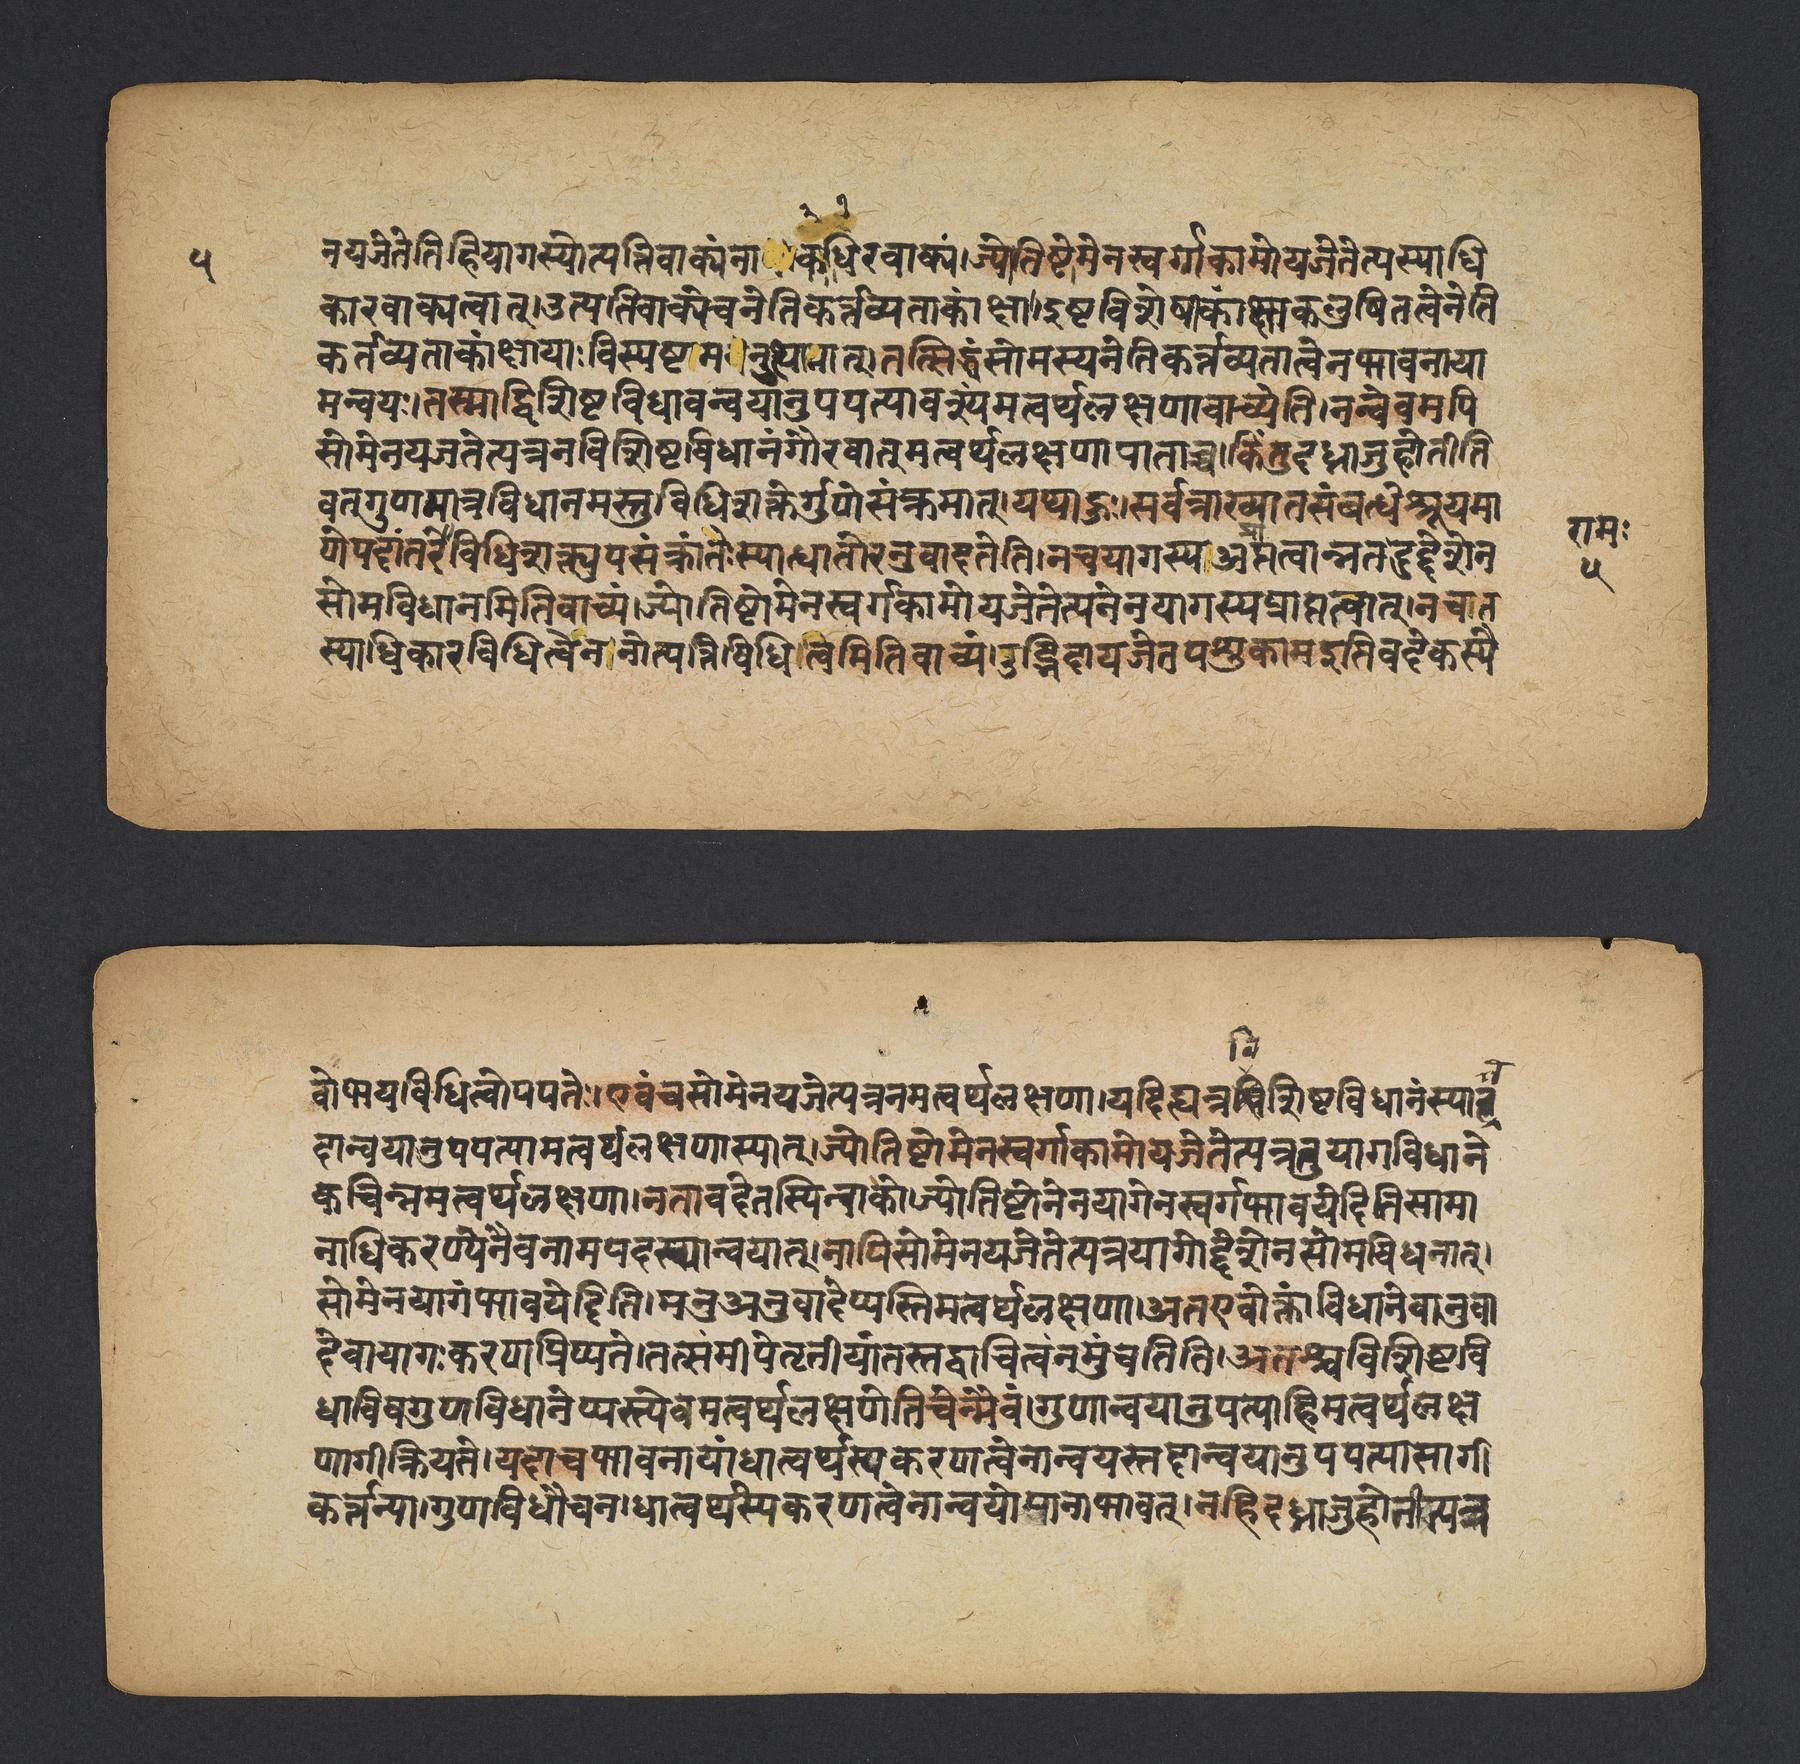 ५
नयजेतेतिहियागस्योत्पत्तिवाक्यंना कधिरवाक्यं।ज्योतिष्टेमेनस्वर्गाकामोयजेतेत्यस्याधि
कारवाक्यत्वात्।उत्पतिवाक्येचनेतिकर्त्तव्यताकांक्षा।इष्टविशेषाकांक्षाकलुषितत्वेनेति
कर्तव्यताकांक्षायाःविस्पष्टामनुत्थानात्।तत्सिद्धंसोमस्यनेतिकर्त्तव्यतात्वेनभावनाया
मन्वयः।तस्माद्विशिष्टविधावन्वयानुपपत्यावश्यंमत्वर्थलक्षणावाच्येति।नन्वेवमपि
सोमेनयजतेत्यत्रनविशिष्टविधानंगौरवात्मत्वर्थलक्षणापाताच्च।किंतुदध्नाजुहोतीति
वत्गुणमात्रविधानमस्तुविधिशक्तेर्गुणेसंक्रमात्।यथाहुः।सर्वत्राख्यातसंबत्धेश्रूयमा
णेपदांतरेविधिशक्त्युपसंक्रांतेःस्याधातोरनुवादतेति।नचयागस्याअप्राप्तत्वान्नतदुद्देशेन
सोमविधानमितिवाच्यं।ज्योतिष्टोमेनस्वर्गकामोयजेतेत्यनेनयागस्यप्राप्तत्वात्।नचात
स्याधिकारविधित्वेननोत्पत्तिविधित्वमितिवाच्यं।उद्भिदायजेतपशुकामइतिवदेकस्यै
रामः
५
वोभयविधित्वोपपतेः।एवंचसोमेनयजेत्यत्रनमत्वर्थलक्षणा।यदिह्यत्रविशिष्टविधानंस्यात्त
दान्वयानुपपत्यामत्वर्थलक्षणास्यात्।ज्योतिष्टोमेनस्वर्गाकामोयजेतेत्यत्रतुयागविधाने
कचिन्नमत्वर्थलक्षणा।नतावदेतस्यिन्वाक्येज्योतिष्टोनेनयागेनस्वर्गभावयेदितिसामा
नाधिकरण्येनैवनामपदस्यान्वयात्।नापिसोमेनयजेतेत्यत्रयागोद्देशेनसोमविधनात्।
सोमेनयागंभावयेदिति।मनुअनुवादेप्यस्तिमत्वर्थलक्षणा।अतएवोक्तंविधानेवानुवा
देवायागःकरणमिष्यते।तत्समीपेतृतीयांतस्तद्वाचित्वंनमुंचतिति।अतश्चविशिष्टवि
धाविवगुणविधानेप्यस्त्येवमत्वर्थलक्षणेतिचेन्मैवं।गुणान्वयानुपत्त्याहिमत्वर्थलक्ष
णागीक्रियते।यदाचभावनायांधात्वर्थस्यकरणत्वेनान्वयस्तदान्वयानुपपत्यासागी
कर्त्तन्या।गुणविधौचन।धात्वर्थस्यकरणत्वेनान्वयोमानाभावत्।नहिदध्नाजुहोतीत्यत्र